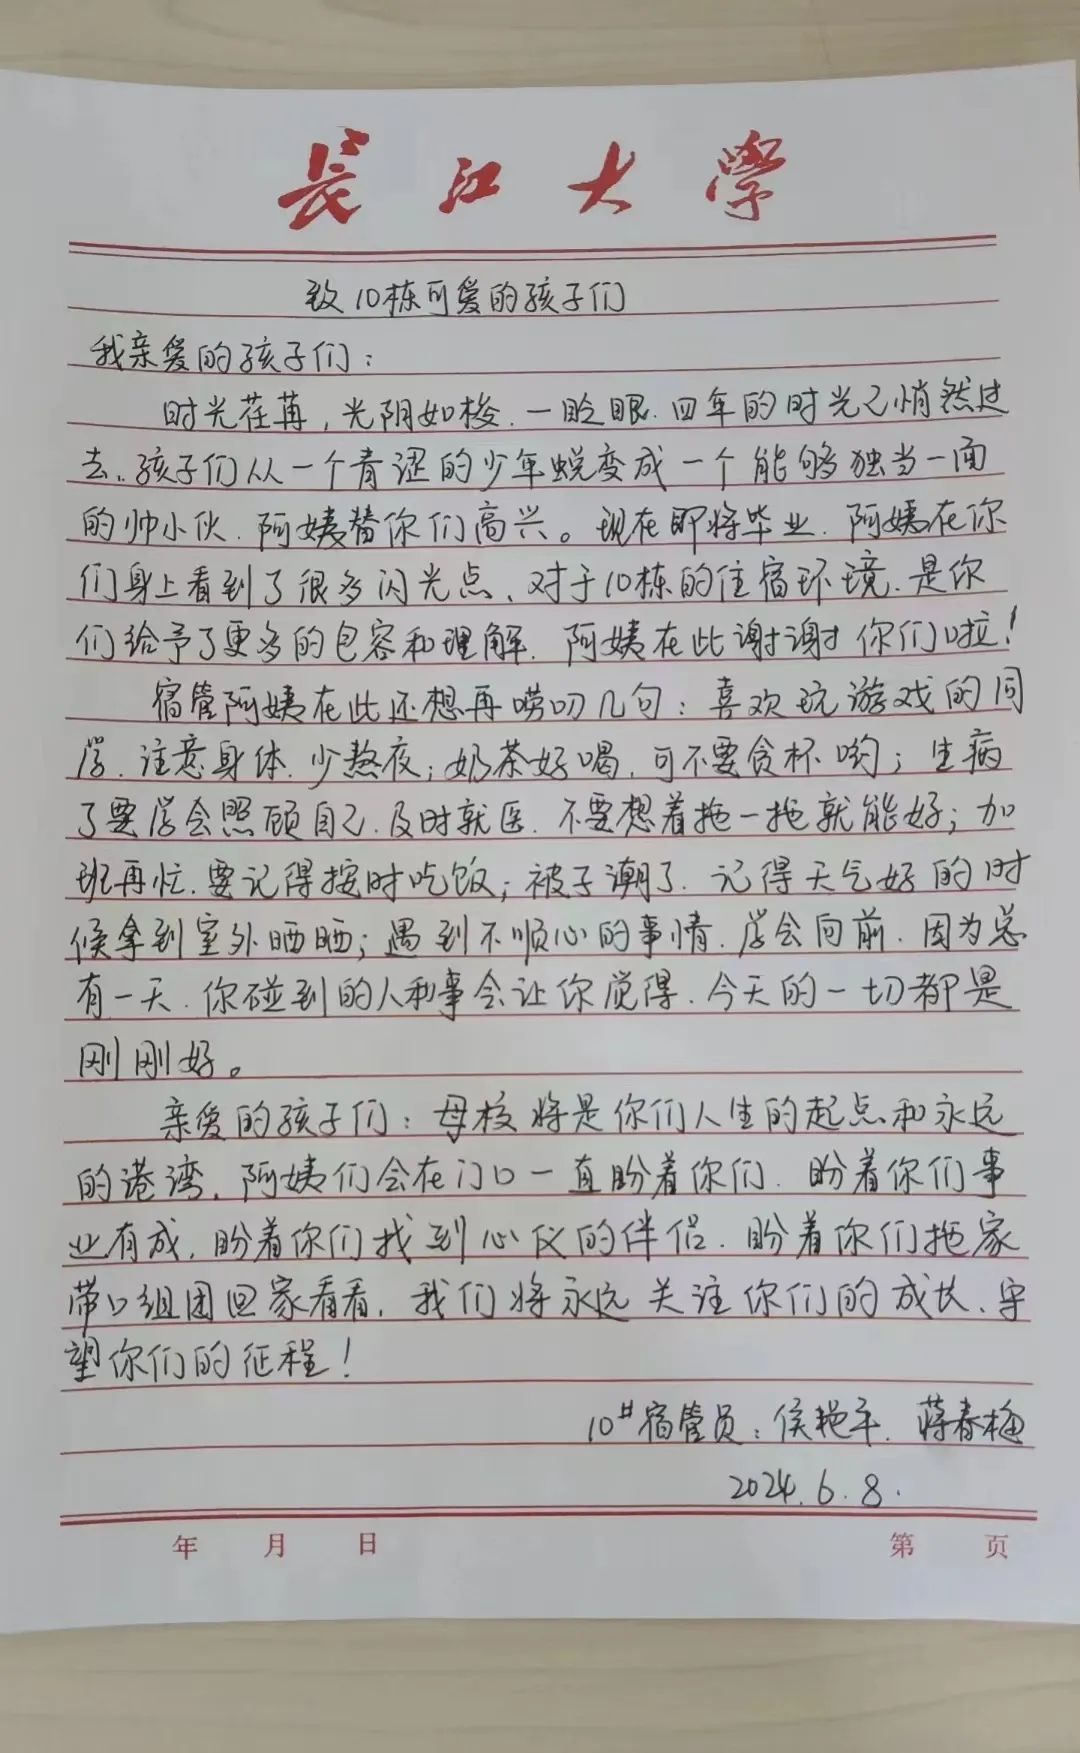 長江大學
致10栋可爱的孩子们
我亲爱的孩子们：
时光荏苒，光阴如梭，一眨眼，四年的时光已悄然过
去。孩子们从一个青涩的少年蜕变成一个能够独当一面
的帅小伙，阿姨替你们高兴。现在即将毕业，阿姨在你
们身上看到了很多闪光点，对于10栋的住宿环境，是你
们给予了更多的包容和理解，阿姨在此谢谢你们啦！
宿管阿姨在此还想再唠叨几句：喜欢玩游戏的同
学，注意身体，少熬夜；奶茶好喝，可不要贪杯哟；生病
了要学会照顾自己，及时就医，不要想着拖一拖就能好；加
班再忙，要记得按时吃饭；被子潮了，记得天气好的时
候拿到室外晒晒；遇到不顺心的事情，学会向前，因为总
有一天，你碰到的人和事会让你觉得，今天的一切都是
刚刚好。
亲爱的孩子们：母校将是你们人生的起点和永远
的港湾，阿姨们会在门口一直盼着你们，盼着你们事
业有成，盼着你们找到心仪的伴侣，盼着你们拖家
带口组团回家看看，我们将永远关注你们的成长、守
望你们的征程！
10#宿管员：侯艳平、蒋春梅
2024.6.8.
年 月 日 第 页